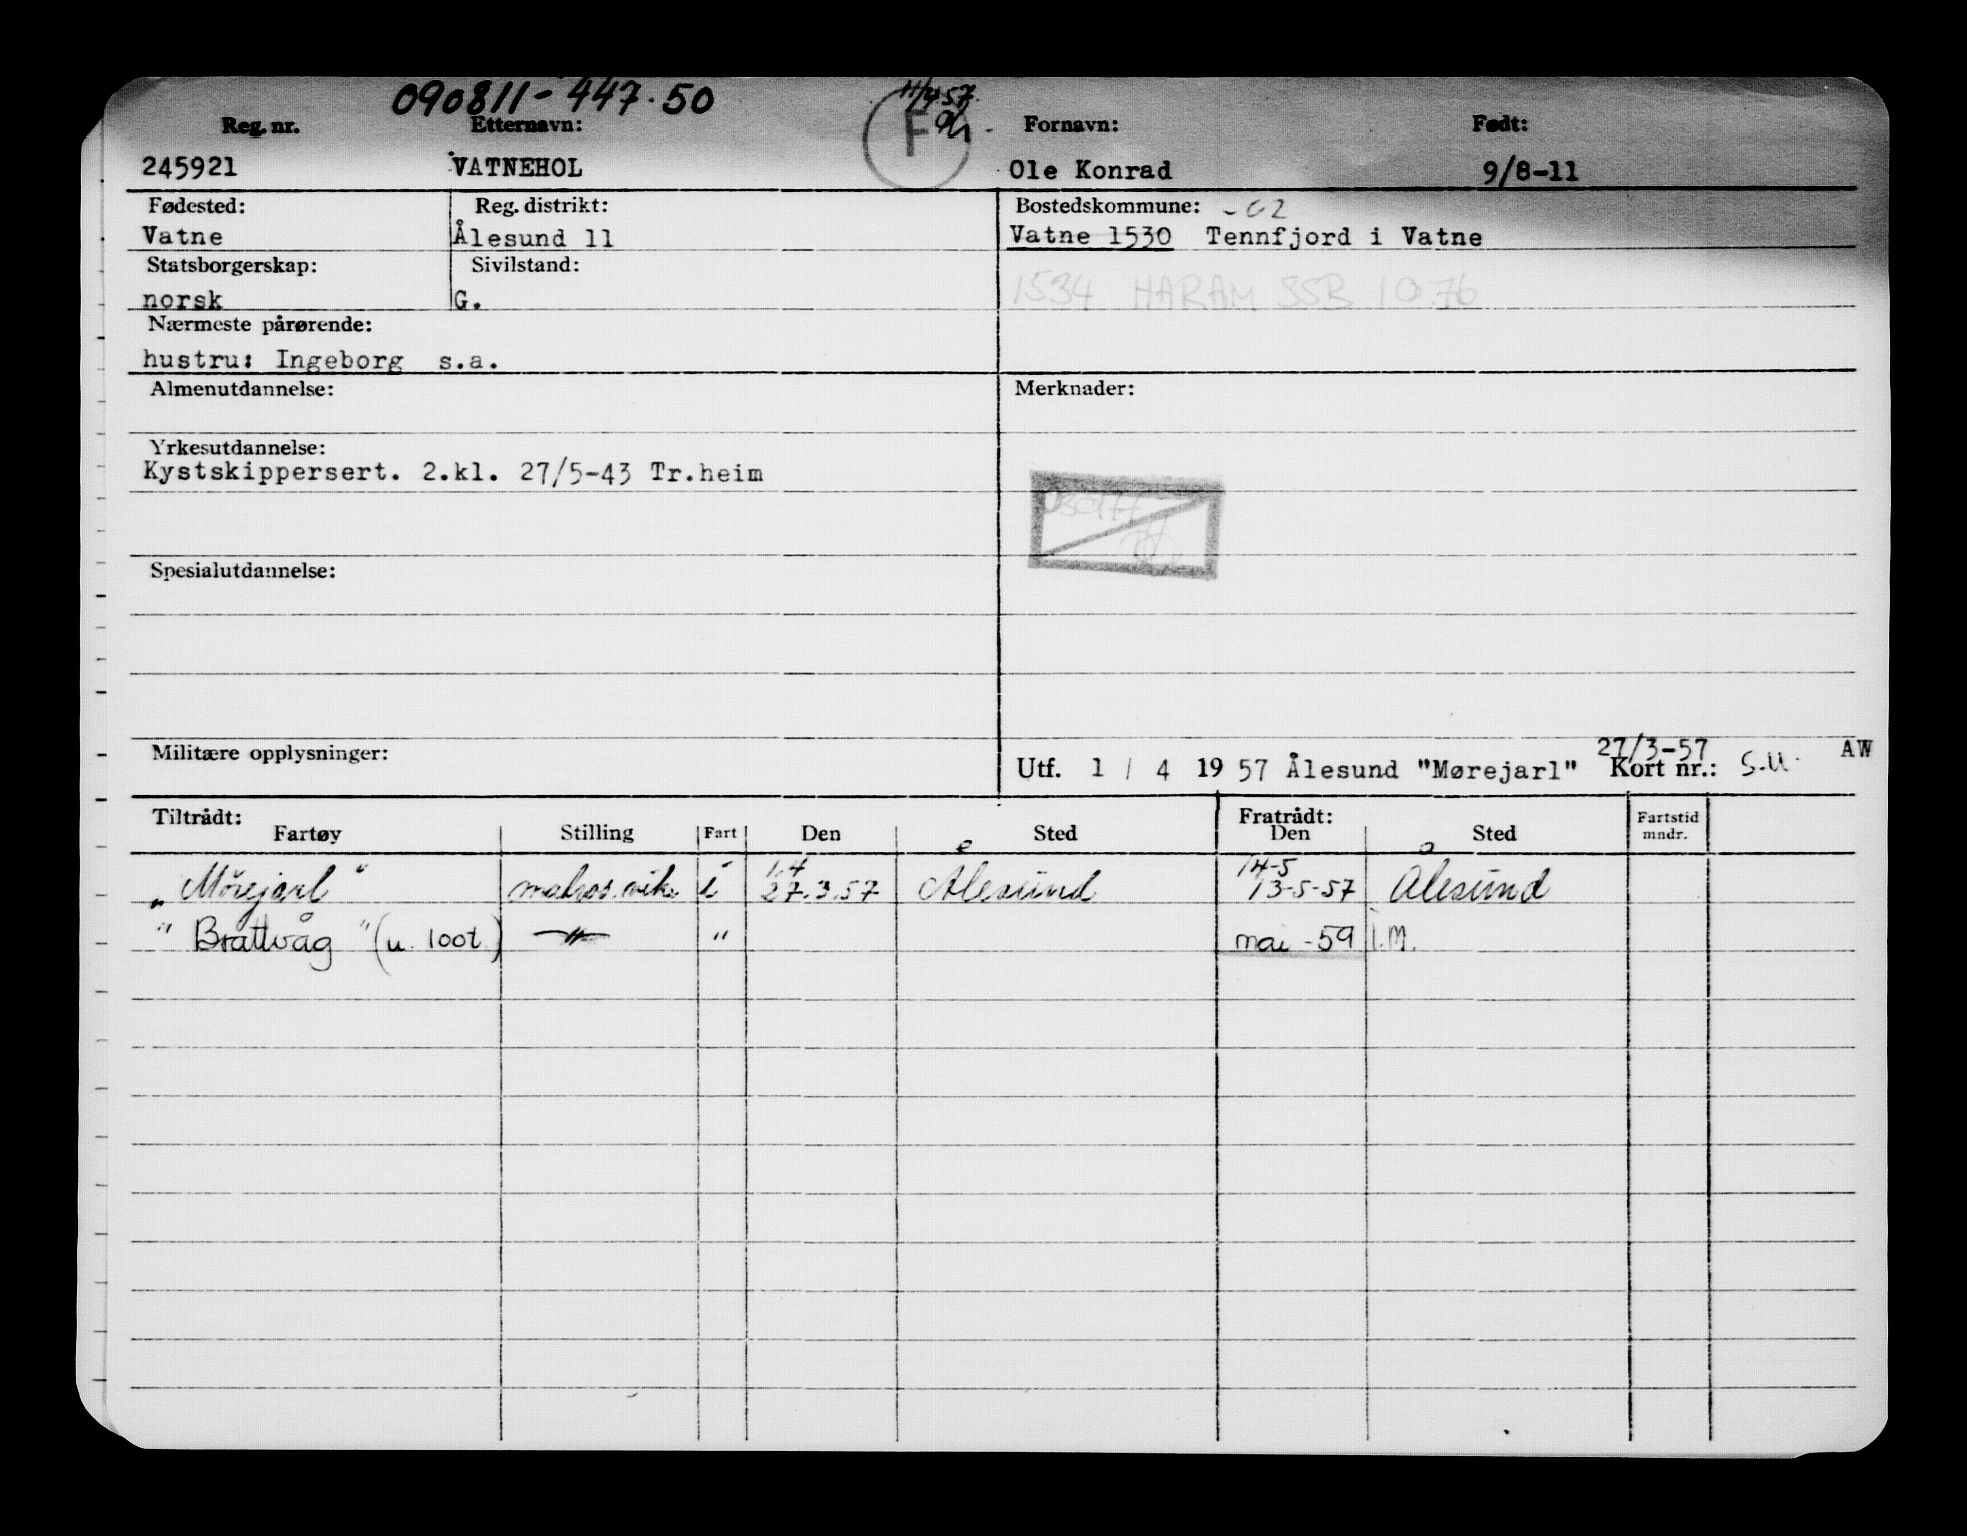 090811-447.50
11/4 57
F
Reg. nr. Etternavn: Fornavn: Født:
245921 VATNEHOL Ole Konrad 9/8-11
Fødested: Reg. distrikt: Bostedskommune: -02
Vatne Ålesund 11 Vatne 1530 Tennfjord i Vatne
Statsborgerskap: Sivilstand:
norsk G. 1534 HARAM SSB 10.76
Nærmeste pårørende:
hustru: Ingeborg s.a.
Almenutdannelse: Merknader:
Yrkesutdannelse:
Kystskippersert. 2.kl. 27/5-43 Tr.heim
Spesialutdannelse:
Militære opplysninger:
27/3-57 AW
Utf. 1 / 4 19 57 Ålesund "Mørejarl" Kort nr.: S.U.
Tiltrådt: Fratrådt: Fartstid
Fartøy Stilling Fart Den Sted Den Sted mndr.
1.4 14-5
"Mørejarl" matros vik. i 27.3.57 Ålesund 13-5-57 Ålesund
"Brattvåg" (u. 100t.) " " mai -59 I.M.